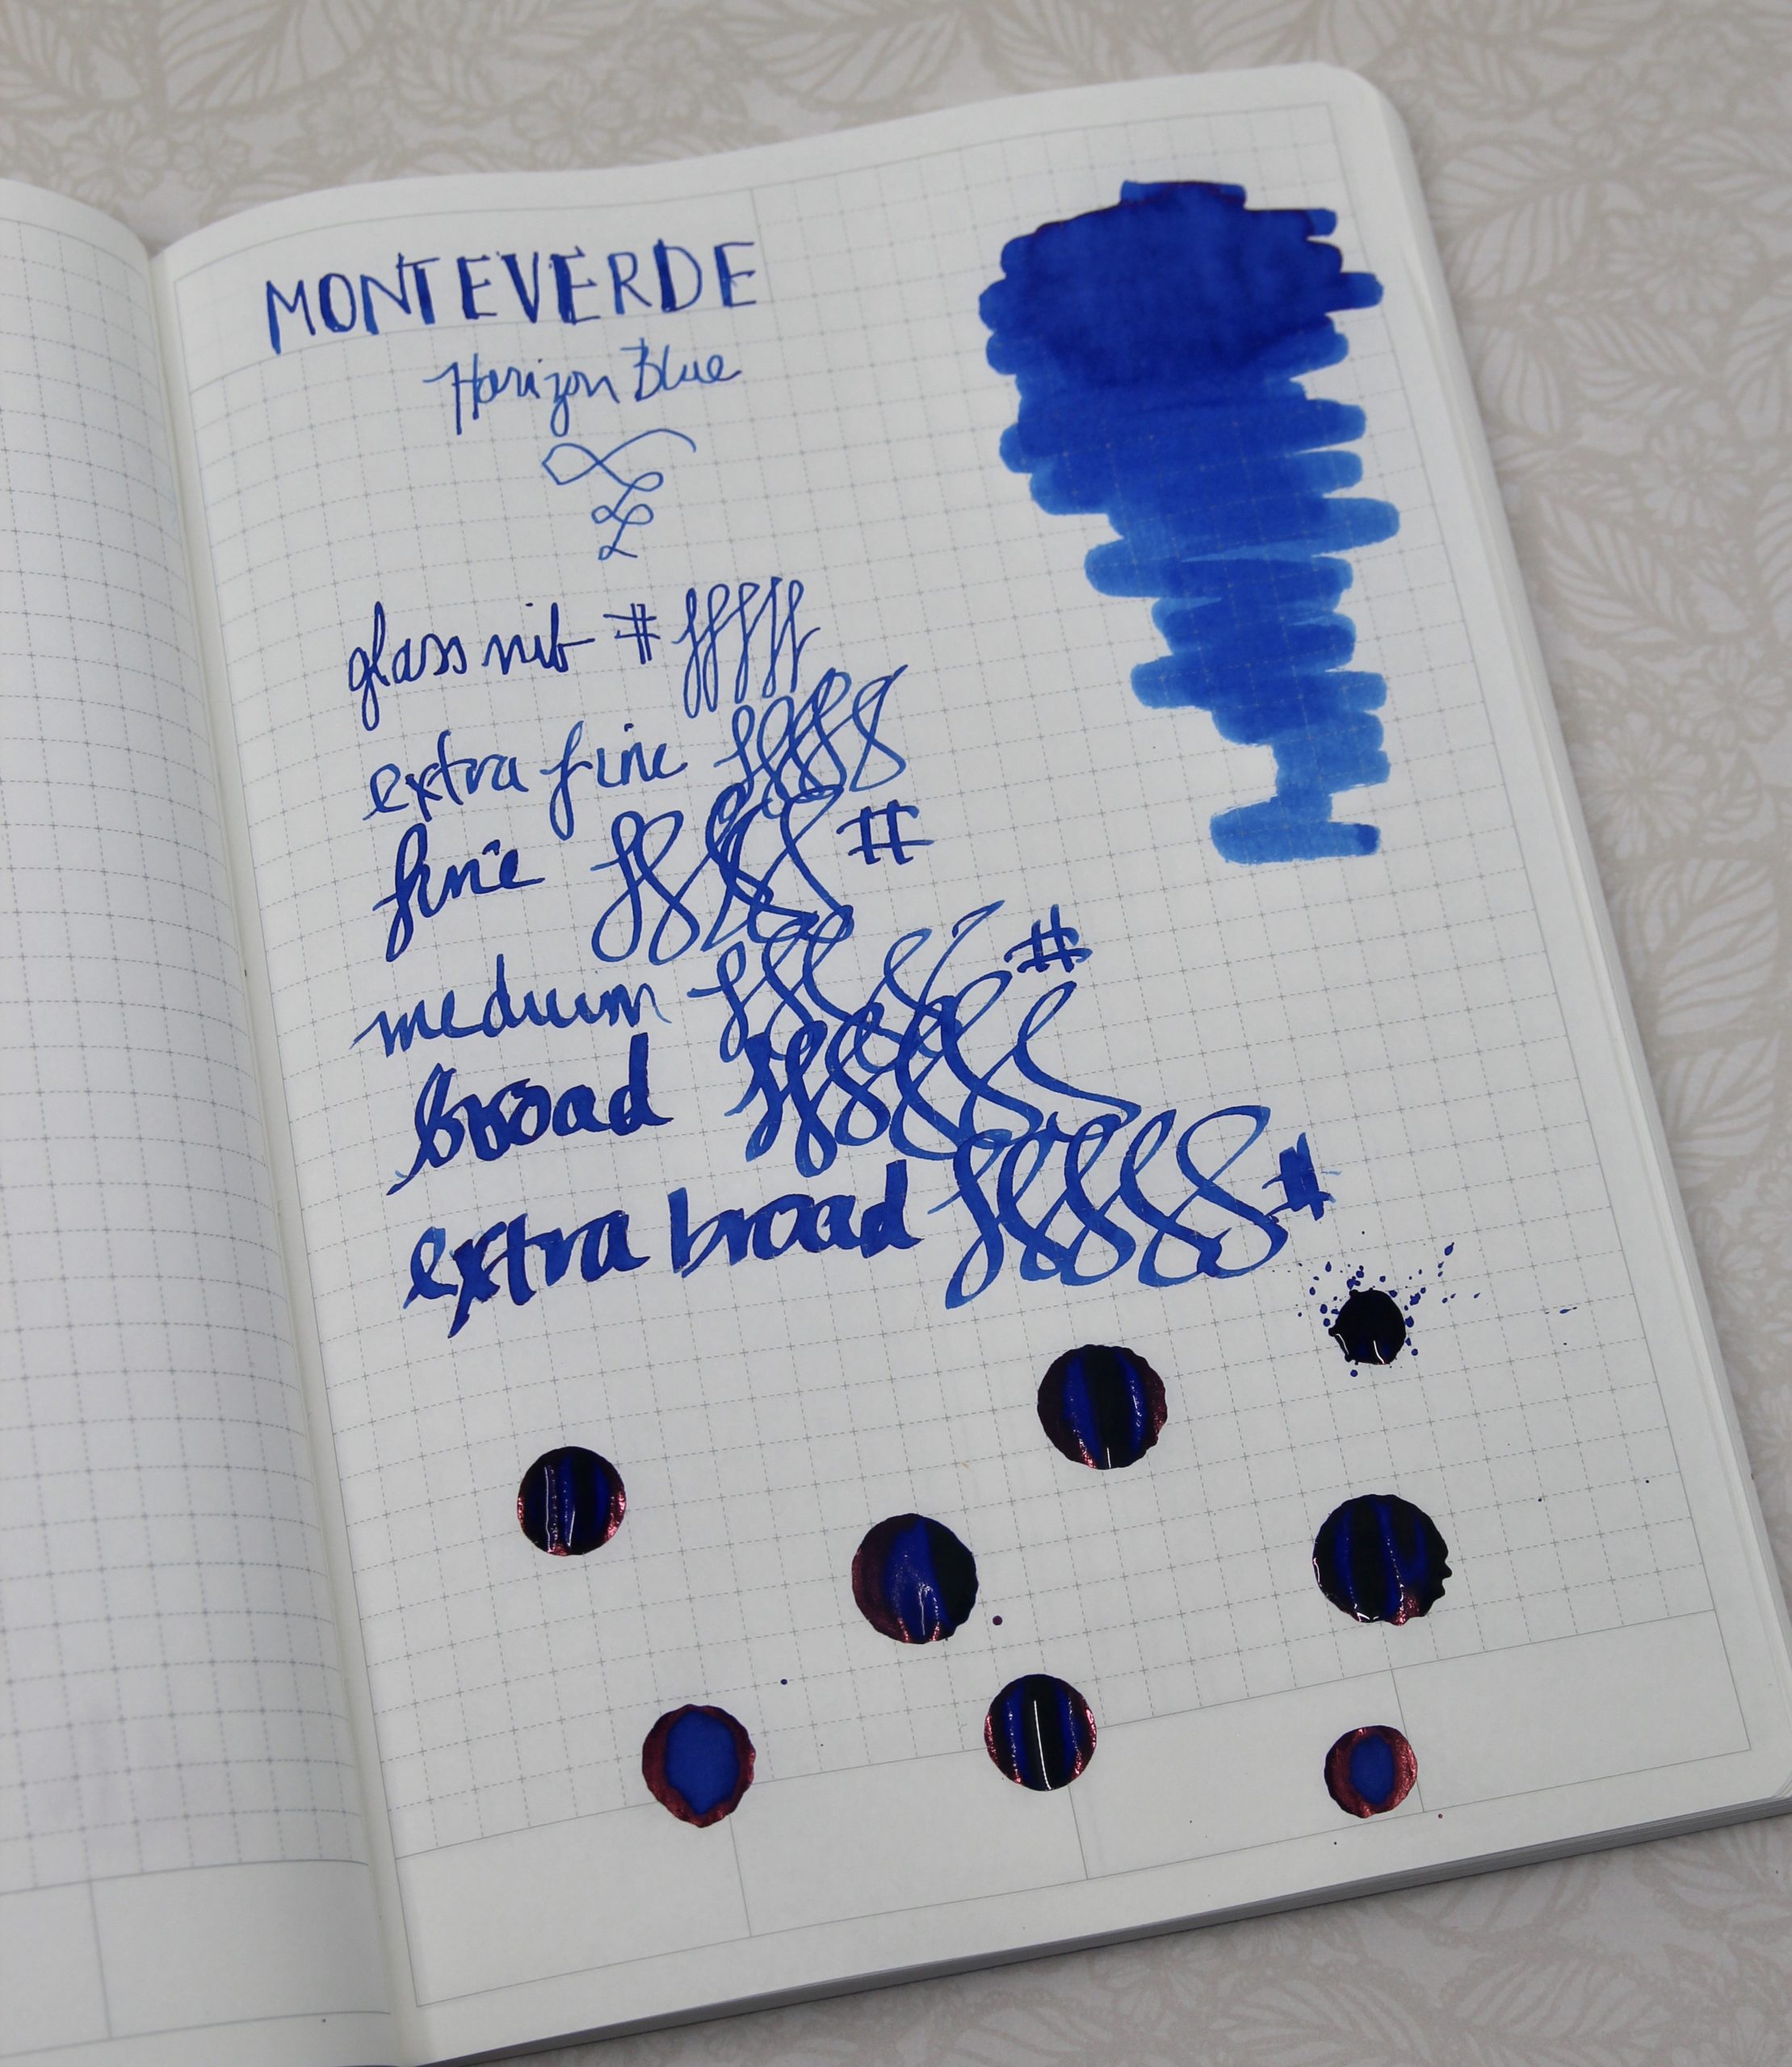 MONTEVERDE
Horizon Blue
glass nib #
extra fine
fine #
medium #
broad
extra broad #